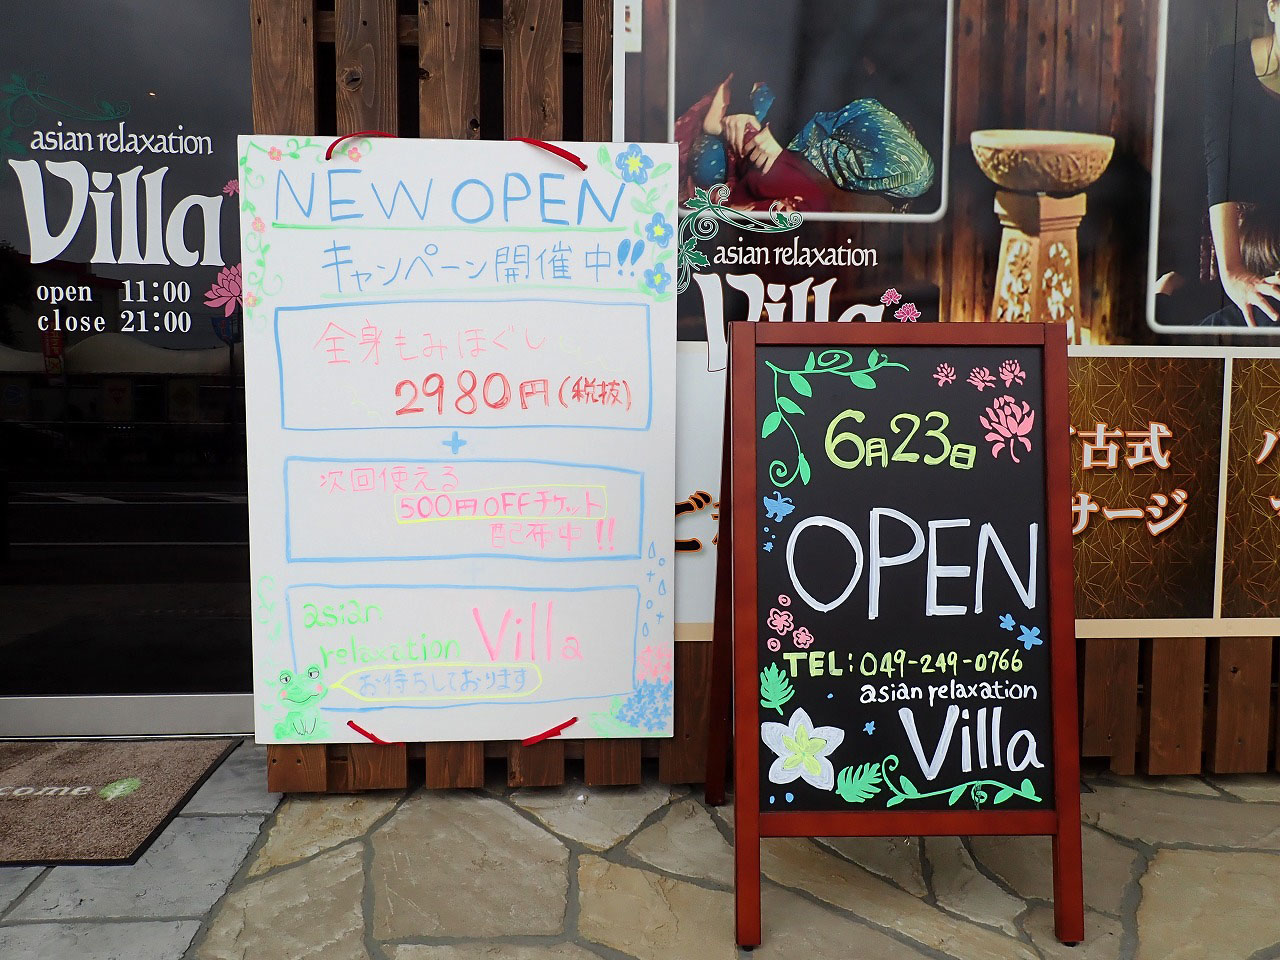 asian relaxation
Villa
open 11:00
close 21:00
NEW OPEN
キャンペーン開催中!!
全身もみほぐし
2980円(税抜)
+
次回使える
500円OFFチケット
配布中!!
asian
relaxation Villa
お待ちしております
asian relaxation
Villa
6月23日
OPEN
TEL:049-249-0766
asian relaxation
Villa
古式
サージ
come